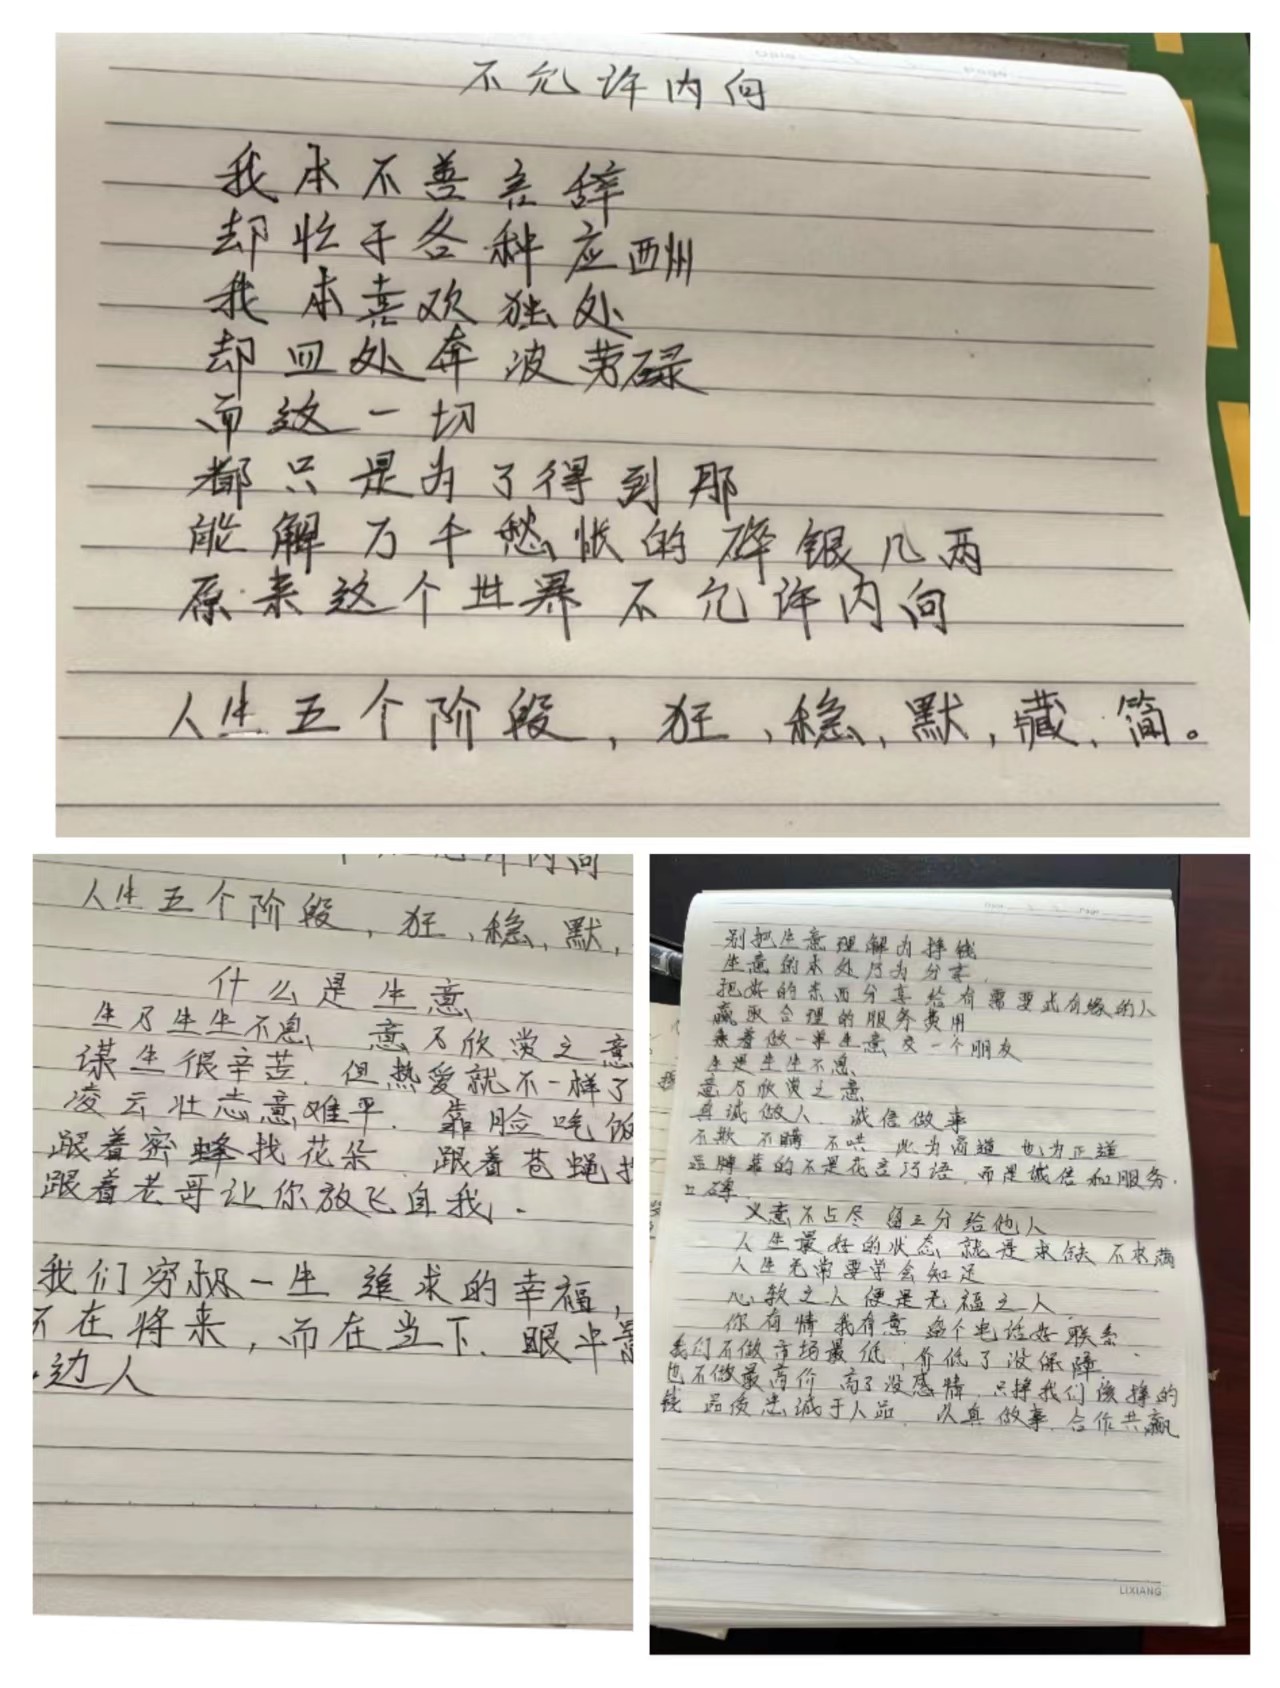 不允许内向
我本不善言辞
却忙于各种应酬
我本喜欢独处
却四处奔波劳碌
而这一切
都只是为了得到那
能解万千愁怅的碎银几两
原来这个世界不允许内向
人生五个阶段，狂，稳，默，藏，简。
许内向
人生五个阶段，狂，稳，默，
什么是生意
生乃生生不息 意乃欣赏之意
谋生很辛苦．但热爱就不一样了
凌云壮志意难平．靠脸吃饭
跟着密蜂找花朵 跟着苍蝇
跟着老哥让你放飞自我．
我们穷极一生 追求的幸福，
不在将来，而在当下．眼半
边人
别把生意理解为挣钱
生意的本处乃为分享．
把好的东西分享给有需要或有缘的人
赢取合理的服务费用
来着做一单生意 交一个朋友
生是生生不息
意乃欣赏之意
真诚做人．诚信做事
不欺 不瞒 不哄 此为商道 也为正道
品牌靠的不是花言巧语．而是诚信和服务．
口碑．
义意不占尽 留三分给他人
人生最好的状态 就是求缺 不求满
人生无常要学会知足
心软之人便是无福之人．
你有情 我有意 逢个电话好联系
我们不做市场最低，价低了没保障．
也不做最高价 高了没感情．只挣我们该挣的
钱 品质忠诚于人品．以真做事．合作共赢
LIXIANG